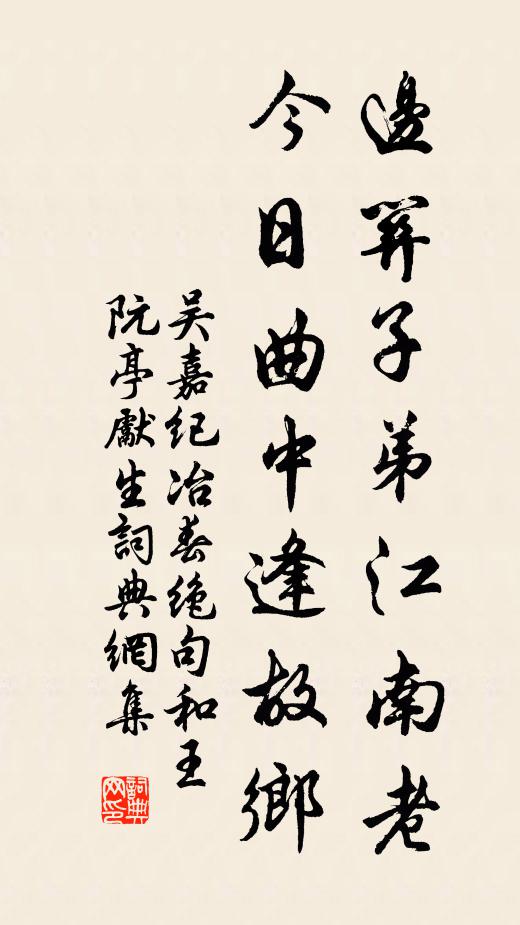 邊關子弟江南老
今日曲中逢故鄉
吴嘉紀冶春絶句和王
阮亭獻生詞典網集
詞典網印